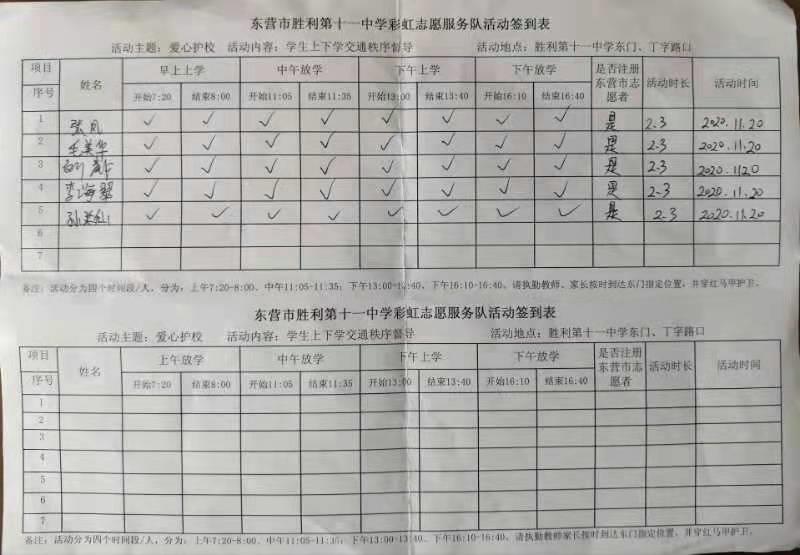 东营市胜利第十一中学彩虹志愿服务队活动签到表
活动主题：爱心护校 活动内容：学生上下学交通秩序督导 活动地点：胜利第十一中学东门、丁字路口
项目 序号 姓名 早上上学 中午放学 下午上学 下午放学 是否注册东营市志愿者 活动时长 活动时间
开始7:20 结束8:00 开始11:05 结束11:35 开始13:00 结束13:40 开始16:10 结束16:40
1 张凤 ✓ ✓ ✓ ✓ ✓ ✓ ✓ ✓ 是 2.3 2020.11.20
2 毛美华 ✓ ✓ ✓ ✓ ✓ ✓ ✓ ✓ 是 2.3 2020.11.20
3 ✓ ✓ ✓ ✓ ✓ ✓ ✓ ✓ 是 2.3 2020.11.20
4 李海 ✓ ✓ ✓ ✓ ✓ ✓ ✓ ✓ 是 2.3 2020.11.20
5 孙 ✓ ✓ ✓ ✓ ✓ ✓ ✓ ✓ 是 2.3 2020.11.20
6
7
备注：活动分为四个时间段/人，分为：上午7:20-8:00、中午11:05-11:35；下午13:00-13:40、下午16:10-16:40。请执勤教师、家长按时到达东门指定位置，并穿红马甲护卫。
东营市胜利第十一中学彩虹志愿服务队活动签到表
活动主题：爱心护校 活动内容：学生上下学交通秩序督导 活动地点：胜利第十一中学东门、丁字路口
项目 序号 姓名 上午放学 中午放学 下午上学 下午放学 是否注册东营市志愿者 活动时长 活动时间
开始7:20 结束8:00 开始11:05 结束11:35 开始13:00 结束13:40 开始16:10 结束16:40
1
2
3
4
5
6
7
备注：活动分为四个时间段/人，分为：上午7:20-8:00、中午11:05-11:35；下午13:00-13:40、下午16:10-16:40。请执勤教师家长按时到达东门指定位置，并穿红马甲护卫。